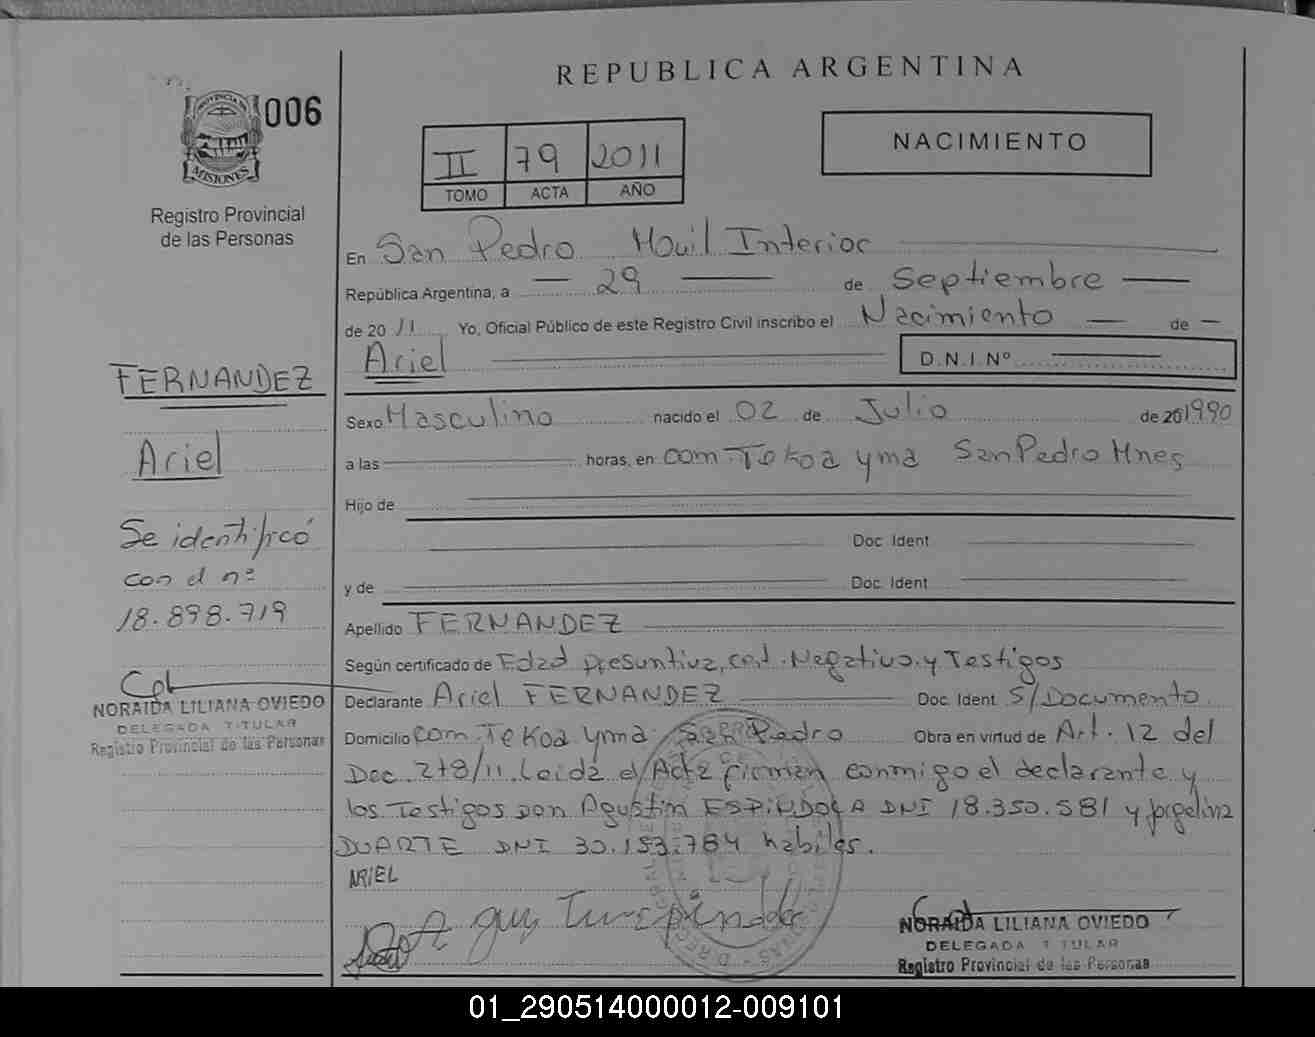 REPUBLICA ARGENTINA
PROVINCIA DE
MISIONES
006
NACIMIENTO
II 79 2011
TOMO ACTA AÑO
Registro Provincial
de las Personas
En San Pedro Movil Interior
República Argentina, a 29 de Septiembre
de 2011 Yo, Oficial Público de este Registro Civil inscribo el Nacimiento de
Ariel D.N.I.Nº
FERNANDEZ
Ariel
Se identificó
con el nº
18.898.719
NORAIDA LILIANA OVIEDO
DELEGADA TITULAR
Registro Provincial de las Personas
Sexo Masculino nacido el 02 de Julio de 201990
a las horas, en com. Tekoa yma San Pedro Mnes
Hijo de
Doc Ident
y de Doc. Ident
Apellido FERNANDEZ
Según certificado de Edad presuntiva, cert. Negativo y Testigos
Declarante Ariel FERNANDEZ Doc. Ident S/Documento
Domicilio com. Tekoa yma San Pedro Obra en virtud de Art. 12 del
Dec. 278/11. Leida el Acta firman conmigo el declarante y
los Testigos don Agustin ESPINDOLA DNI 18.350.581 y Jorgelina
DUARTE DNI 30.153.784 habiles.
ARIEL
NORAIDA LILIANA OVIEDO
DELEGADA TITULAR
Registro Provincial de las Personas
01_290514000012-009101